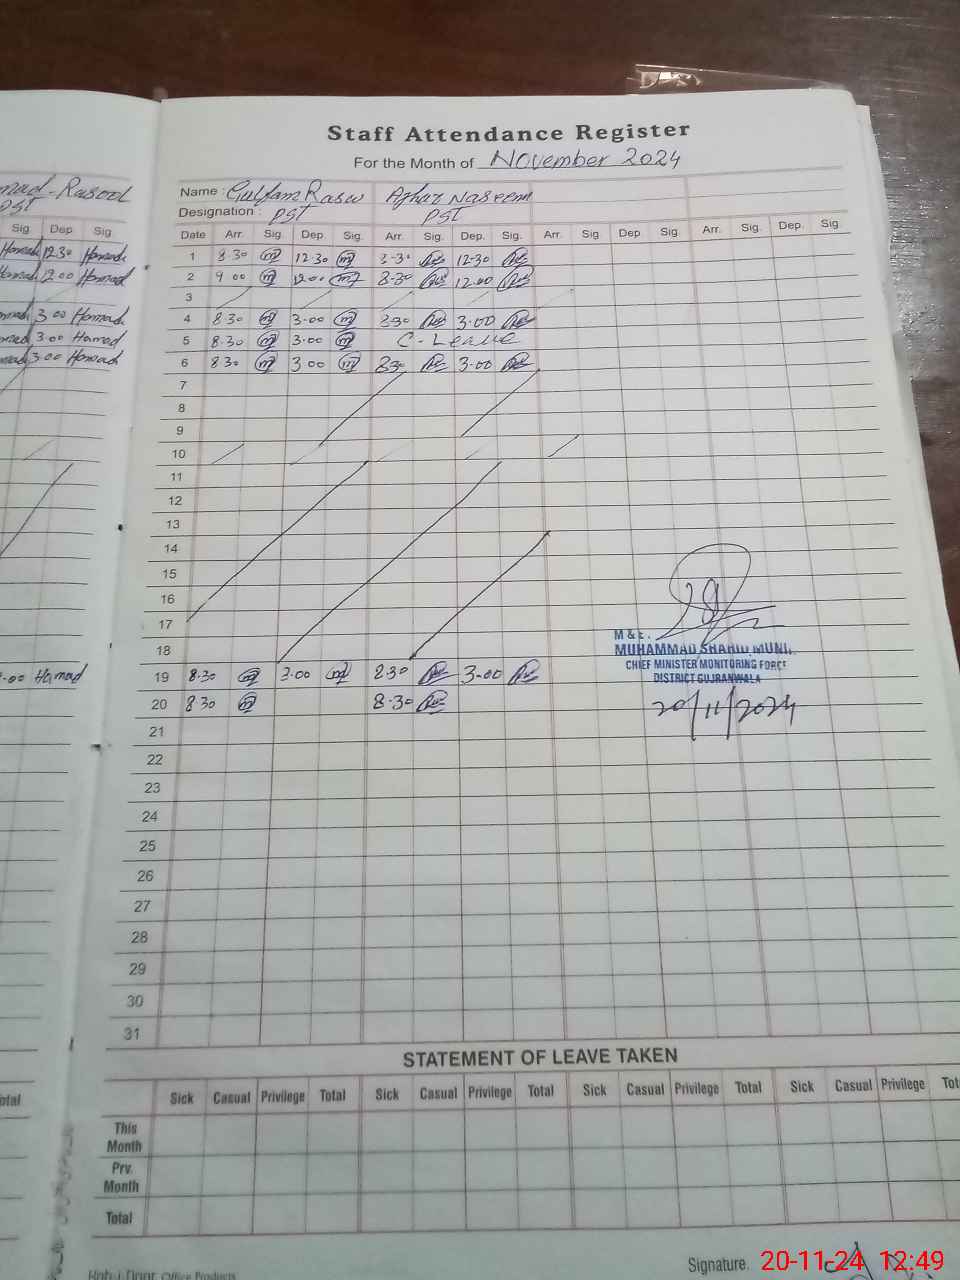 Staff Attendance Register
For the Month of November 2024
Rasool
PST
Name : Gulfam Rasul Azhar Naseem
Designation : PST PST
Sig Dep Sig.
Date Arr. Sig. Dep. Sig. Arr. Sig. Dep. Sig. Arr. Sig Dep Sig Arr. Sig. Dep. Sig.
12.30 Hamad
1 8.30 12.30 8.30 12-30
12.00 Hammad
2 9.00 12.00 8.30 12.00
3
3.00 Hammad
4 8.30 3.00 8.30 3.00
3.00 Hamad
5 8.30 3.00 C-Leave
3.00 Hammad
6 8.30 3.00 8.30 3.00
7
8
9
10
11
12
13
14
15
16
17
18
M & E.
MUHAMMAD SHAHID MUNI
CHIEF MINISTER MONITORING FORCE
DISTRICT GUJRANWALA
20/11/2024
Hamad
19 8.30 3.00 8.30 3.00
20 8.30 8.30
21
22
23
24
25
26
27
28
29
30
31
STATEMENT OF LEAVE TAKEN
Sick Casual Privilege Total Sick Casual Privilege Total Sick Casual Privilege Total Sick Casual Privilege Tot
otal
This
Month
Prv.
Month
Total
Office Products
Signature.
20-11-24 12:49